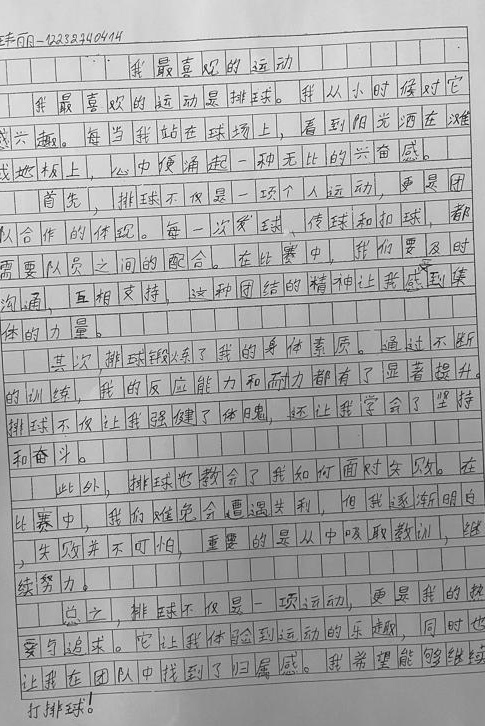 丽-12232740414
我最喜欢的运动
我最喜欢的运动是排球。我从小时候对它
感兴趣。每当我站在球场上，看到阳光洒在
地板上，心中便涌起一种无比的兴奋感。
首先，排球不仅是一项个人运动，更是团
队合作的体现。每一次发球、传球和扣球，都
需要队员之间的配合。在比赛中，我们要及时
沟通，互相支持，这种团结的精神让我感到集
体的力量。
其次，排球锻炼了我的身体素质。通过不断
的训练，我的反应能力和耐力都有了显著提升。
排球不仅让我强健了体魄，还让我学会了坚持
和奋斗。
此外，排球也教会了我如何面对失败。在
比赛中，我们难免会遭遇失利，但我逐渐明白
，失败并不可怕，重要的是从中吸取教训，继
续努力。
总之，排球不仅是一项运动，更是我的热
爱与追求。它让我体验到运动的乐趣，同时也
让我在团队中找到了归属感。我希望能够继续
打排球！